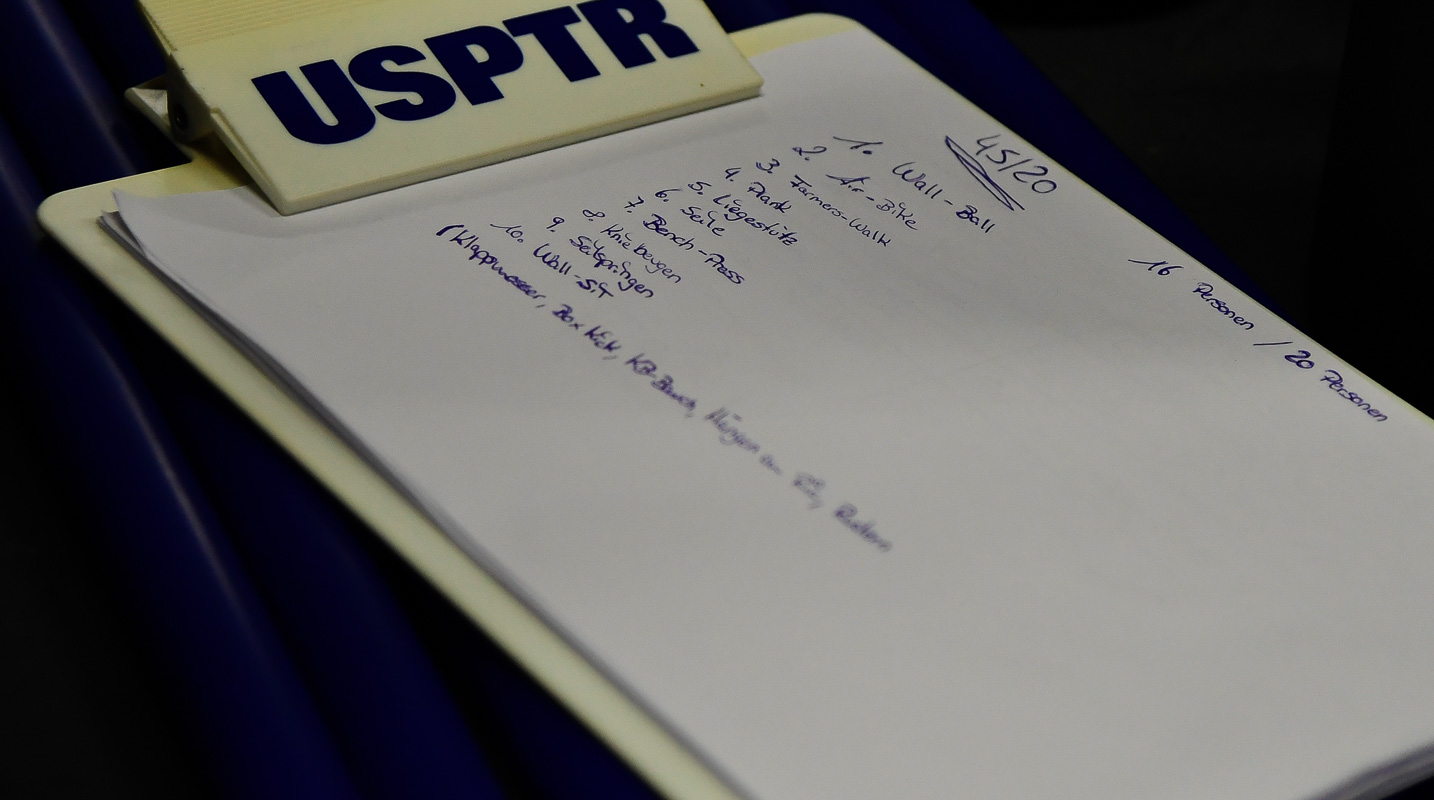 USPTR
45/20
1. Wall-Ball
2. Air-Bike
3. Farmers-Walk
4. Plank
5. Liegestütz
6. Seile
7. Bench-Press
8. Kniebeugen
9. Seilspringen
10. Wall-Sit
(Klappmesser, Box Kick, KB- Rudern
16 Personen / 20 Personen